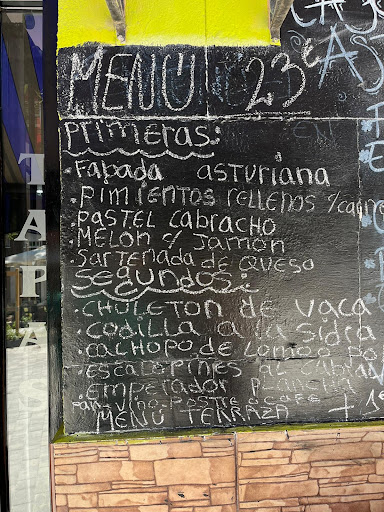 MENÚ 23€
primeras:
. Fabada asturiana
. Pimientos rellenos
. PASTEL cabracho
. MELON c/ Jamón
. Sartenada de Queso
segundos:
. CHULETON DE VACA
. codilla a la sidra
. CACHOPO DE LOMO O PO
. ESCALOPINES AL CABRA
. EMPERADOR PLANCHA
Pan-Vino-Postre o café
MENÚ TERRAZA + 1€
TAPAS